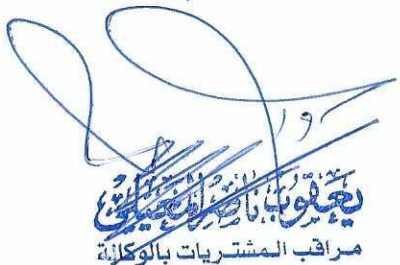 يعقوب ناصر
مراقب المشتريات بالوكالة